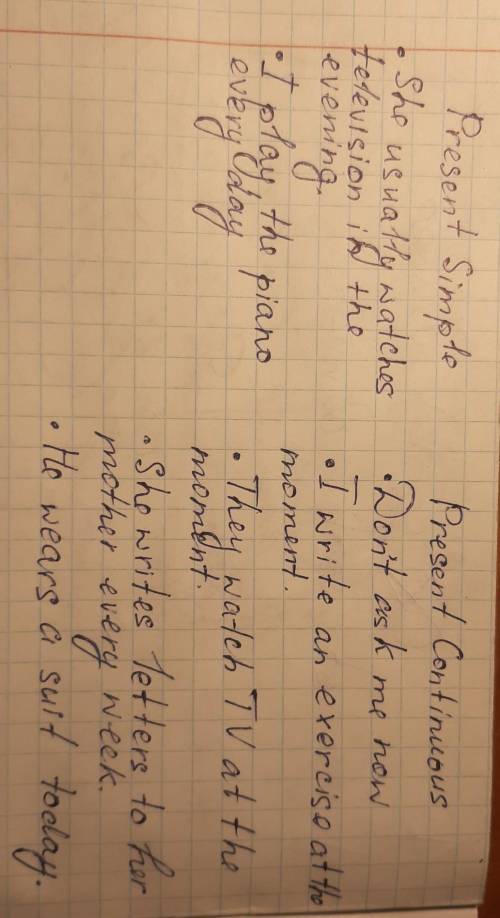 Present Simple
• She usually watches
television in the
evening.
• I play the piano
every day
Present Continuous
• Don't ask me now
• I write an exercise at the
moment.
• They watch TV at the
moment.
• She writes letters to her
mother every week.
• He wears a suit today.